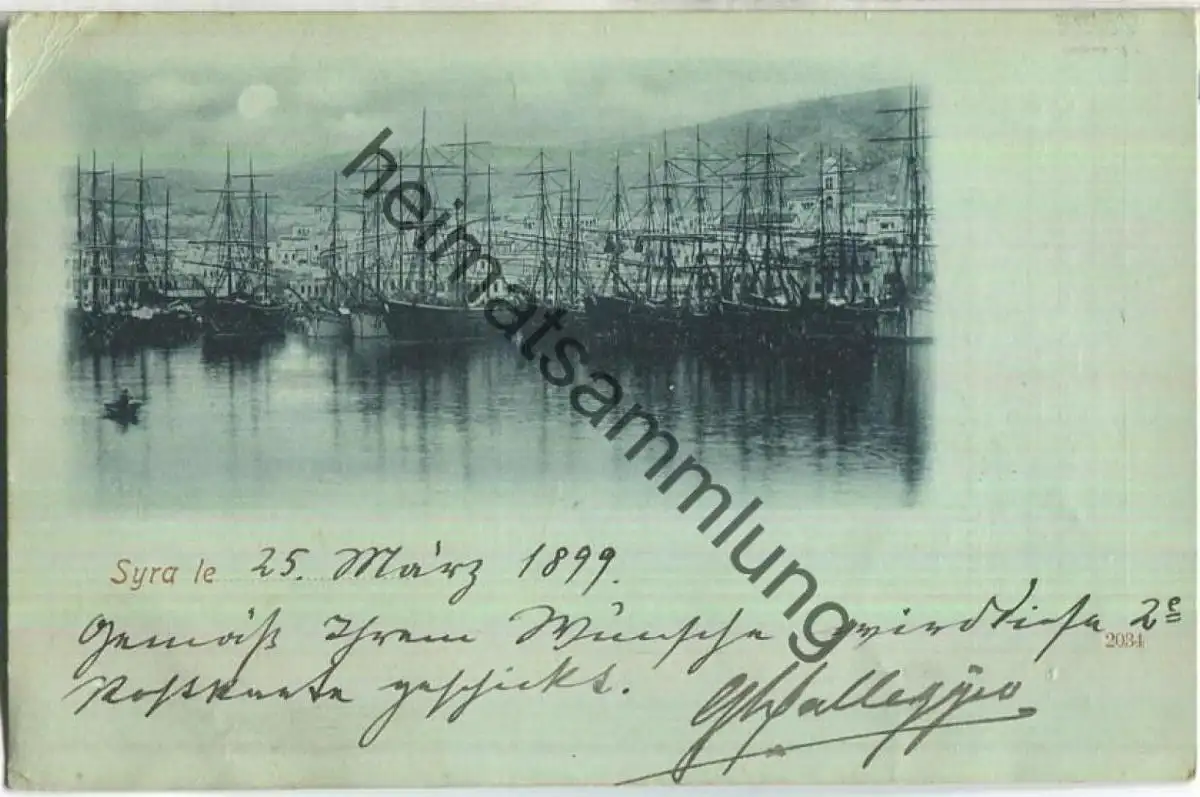 heimatsammlung
Syra le 25. März 1899.
Gemäß Ihrem Wunsche wird diese 2e
2034
Postkarte geschickt.